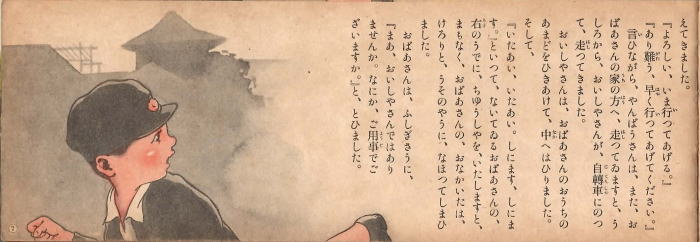 えてきました。
『よろしい、いま行つてあげる。』
『あり難う、早く行つてあげてください。』
言ひながら、やんばうさんは、また、お
ばあさんの家の方へ、走つてゐますと、う
しろから、おいしやさんが、自轉車にのつ
て、走つてきました。
おいしやさんは、おばあさんのおうちの
あまどをひきあけて、中へはひりました。
そして、
『いたあい、いたあい。しにます、しにま
す。』といつて、ないてゐるおばあさんの、
右のうでに、ちゆうしやを、いたしますと、
まもなく、おばあさんの、おなかいたは、
けろりと、うそのやうに、なほつてしまひ
ました。
おばあさんは、ふしぎさうに、
『まあ、おいしやさんではあり
ませんか。なにか、ご用事でご
ざいますか。』と、とひました。